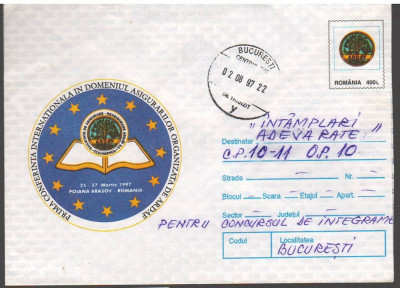 PRIMA CONFERINTA INTERNATIONALA IN DOMENIUL ASIGURARILOR ORGANIZATA DE ARDAF
25 - 27 Martie 1997
POIANA BRASOV - ROMANIA
BUCURESTI
02 08 97 22
ROMÂNIA 400L
„ÎNTÂMPLARI
Destinatar ADEVARATE"
C.P. 10-11 O.P. 10
Strada Nr.
Blocul Scara Etajul Apart.
Sector Județul
PENTRU CONCURSUL DE INTEGRAME
Codul Localitatea
BUCUREȘTI